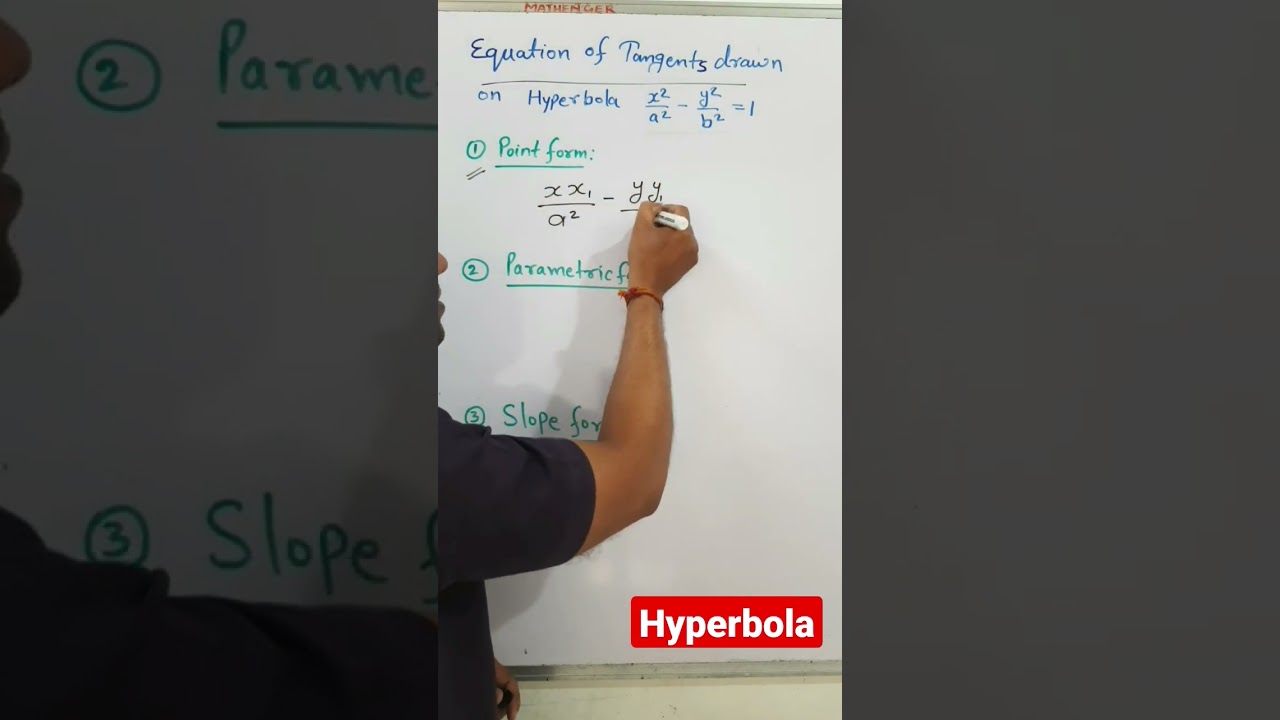 MATHENGER
Equation of Tangents drawn
on Hyperbola x²/a² - y²/b² = 1
① Point form:
xx₁/a² - yy₁
② Parametric
③ Slope for
Hyperbola
② Parame
③ Slope